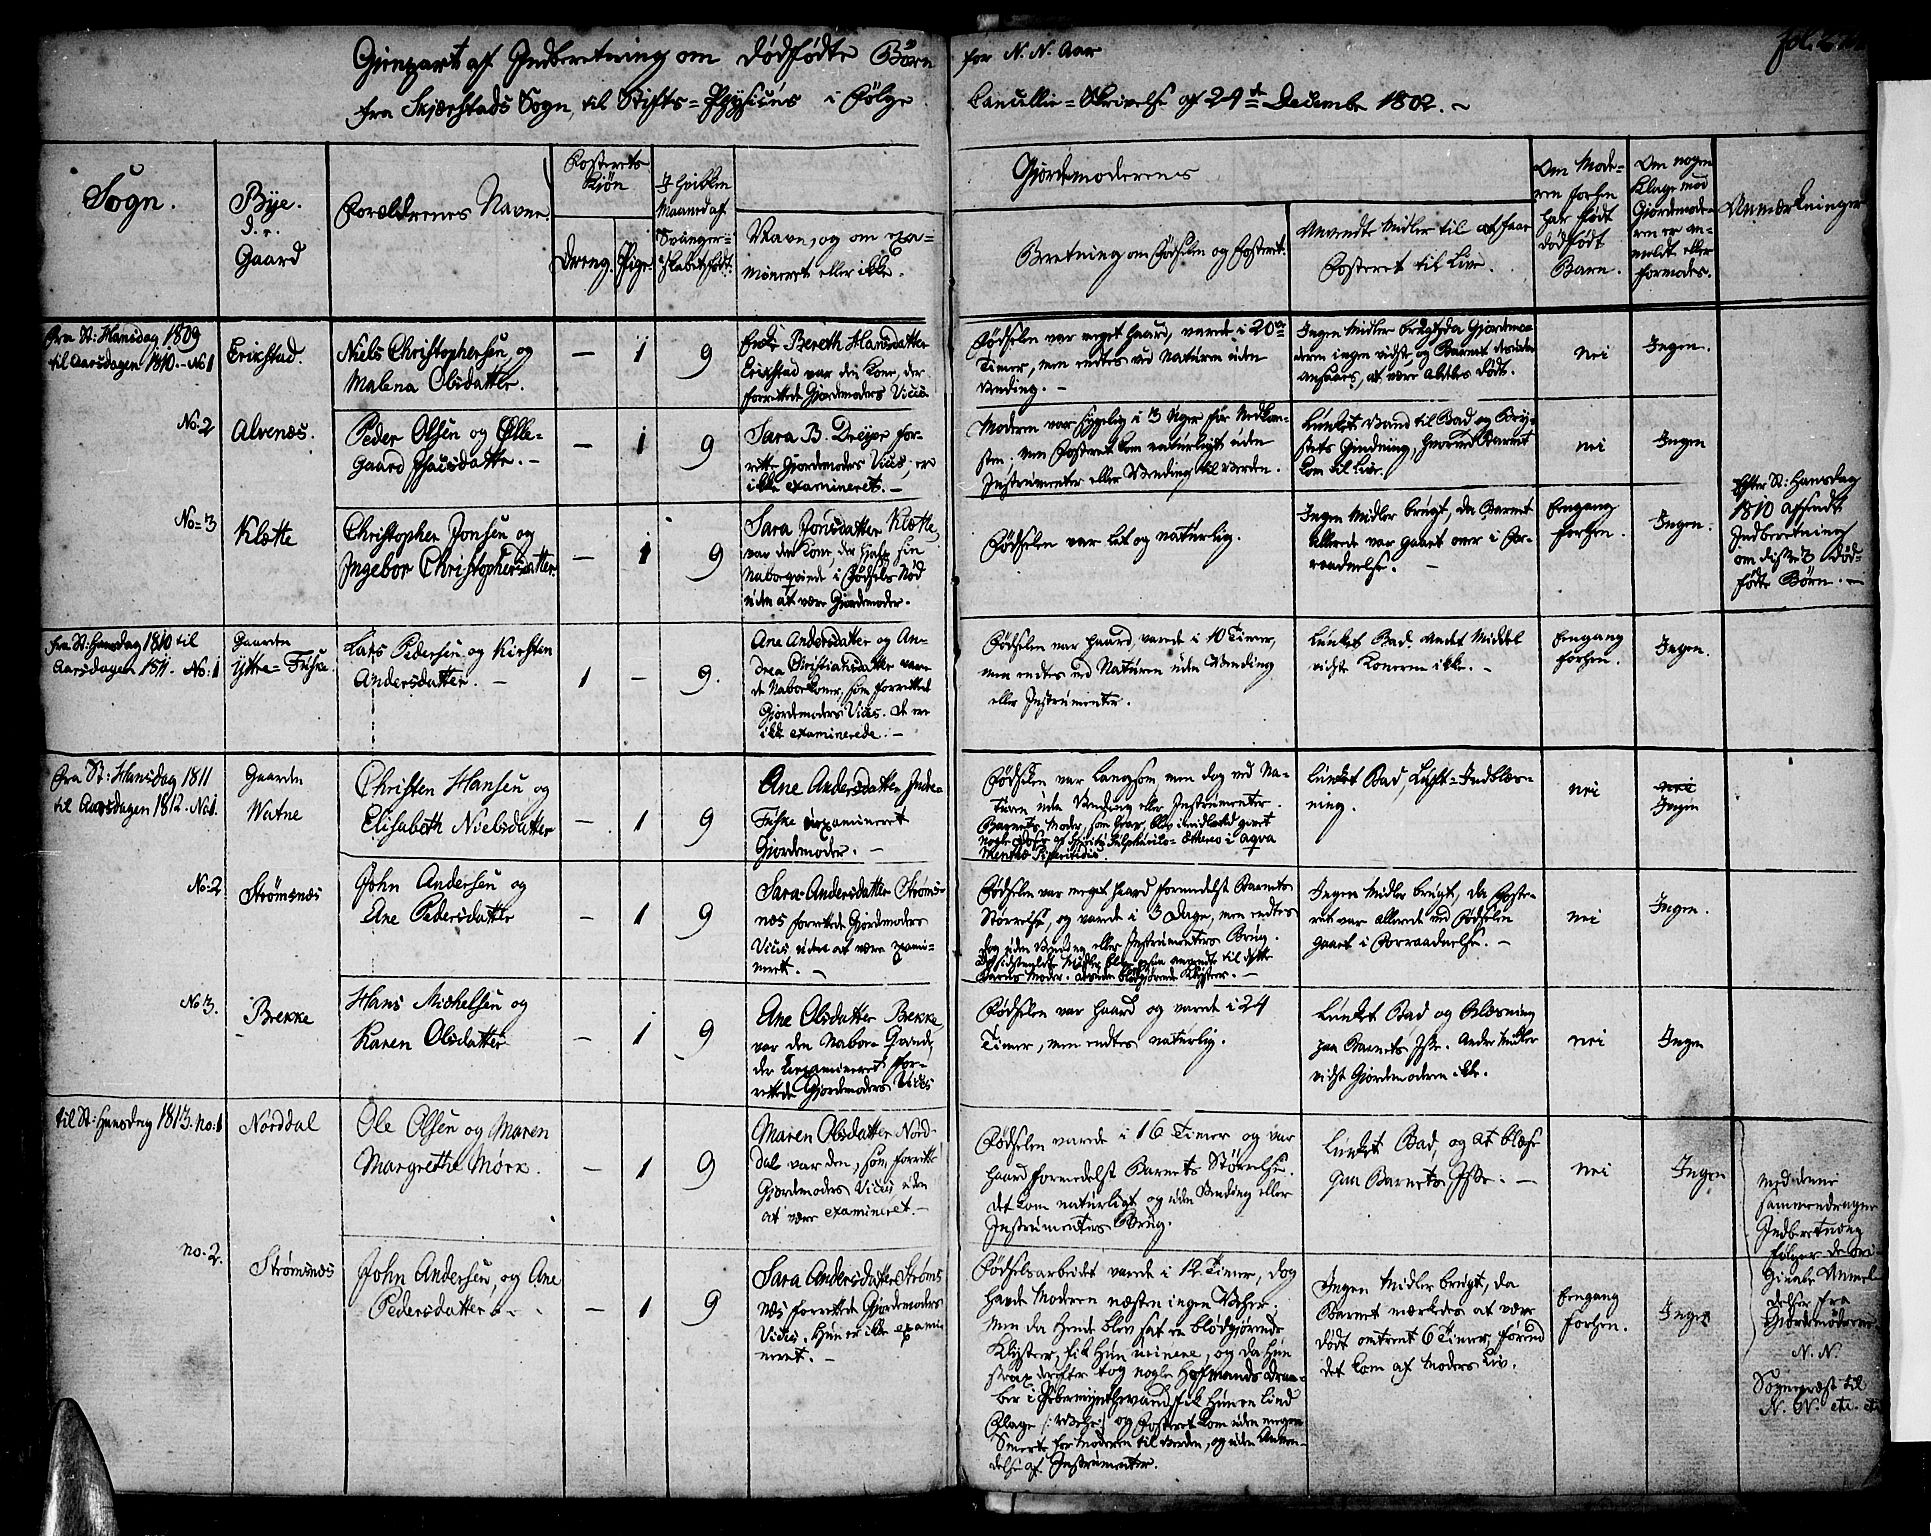 Gienpart af Indberetning om dødfødte Børn for N. N. Aar
fra Skjerstads Sogn, til Stifts-Physicus i Følge Cancellie-Skrivelse af 24de Decembr 1802.
Sogn.
Bye.
Gaard
Forældrenes Navne.
Fosterets
Kjøn
Dreng. Pige.
I hvilken
Maaned af
Svanger-
skabet født.
Gjordemoderens
Navn, og om exa-
mineret eller ikke.
Beretning om Fødselen og Fosteret.
Anvendte Midler til at faae
Fosteret til Live.
Om Mode-
ren forhen
har født
dødfødt
Barn.
Om nogen
Klage mod
Gjordemode-
ren er an-
meldt eller
formodes.
Anmærkninger
fra St: Hansdag 1809
til Aarsdagen 1810. No 1
Erikstad.
Niels Christophersen og
Malena Olsdatter.
— 1 9
Enke Bereth Hansdatter
Erikstad var den Kone, der
forrettede Gjordemoders Vices
Fødselen var meget haard, varede i 20
Timer, men endtes ved Naturen uden
Vending. —
Ingen Midler brugt, da Gjordemo-
deren ingen vidste, og Barnet desuden
ansaaes, at være aldeles dødt.
nei
Ingen.
No. 2
Alvenæs.
Peder Olsen og Olle-
gaard Hansdatter. —
— 1 9
Sara B. Dreyer for-
rettede Gjordemoders Vices, er
ikke examineret. —
Moderen var sygelig i 3 Uger før Nedkom-
sten, men Fosteret kom naturligt uden
Instrumenter eller Vending til Verden.
Lunket Vand til Bad og Bry-
stets Gnidning, hvorved Barnet
kom til Live.
nei
Ingen
No. 3
Kløtte
Christopher Jonsen og
Ingebor Christophersdatter
— 1 9
Sara Jonsdatter Kløtte,
var den Kone, der hjalp sin
Naboqvinde i Fødsels Nød
uden at være Gjordemoder.
Fødselen var let og naturlig.
Ingen Midler brugt, da Barnet
allerede var gaaet over i For-
raadnelse. —
Eengang
forhen.
Ingen.
Efter St: Hansdag
1810 afsendt
Indberetning
om disse 3 død-
fødte Børn. —
fra St: Hansdag 1810 til
Aarsdagen 1811. No. 1
Gaarden
Yttre-Fiske
Lars Pedersen og Kirsten
Andersdatter. —
1 — 9.
Ane Andersdatter og An-
drea Christiansdatter vare
de Nabokoner, som forrettede
Gjordemoders Vices. De ere
ikke examinerede. —
Fødselen var haard, varede i 10 Timer,
men endtes ved Naturen uden Vending
eller Instrumenter.
Lunket Bad. Andet Middel
vidste Konerne ikke. —
Eengang
forhen.
Ingen.
fra St: Hansdag 1811
til Aarsdagen 1812. No 1.
Gaarden
Watne
Christen Hansen og
Elisabeth Nielsdatter
— 1 9
Ane Andersdatter Indre-
Fiske uexamineret
Gjordemoder. —
Fødselen var langsom, men dog ved Na-
turen uden Vending eller Instrumenter.
Barnets Moder, som svar, blev imidlertid givet
nogle Doser af Spiritu Sulphurico-Æthereo i aqva
Menthæ Piperitidis.
Lunket Bad, Luft-Indblæs-
ning.
nei
nei
Ingen
No. 2
Strømsnæs
John Andersen og
Ane Pedersdatter
— 1 9
Sara Andersdatter Strøms-
næs forrettede Gjordemoders
Vices uden at være exami-
neret. —
Fødselen var meget haard formedelst Barnets
Størrelse, og varede i 3 Dage, men endtes
dog uden Vending eller Instrumenters Brug.
Moder. blødgjørende Klyster. —
Ingen Midler brugt, da Foste-
ret var allerede ved Fødselen
gaaet i Forraadnelse. —
nei
Ingen.
No 3.
Brekke
Hans Michelsen og
Karen Olsdatter
— 1 9
Ane Olsdatter Brekke
var den Nabo-Qvinde,
der uexamineret for-
rettede Gjordemoders Vices
Fødselen var haard og varede i 24
Timer, men endtes naturlig.
Lunket Bad og Blæsning
paa Barnets Isse. Andre Midler
vidste Gjordemoderen ikke.
nei
Ingen
til St: Hansdag 1813. no. 1
Norddal
Ole Olsen og Maren
Margrethe Mörk.
— 1 9
Maren Olsdatter Nord-
dal var den, som forrettede
Gjordemoders Vices uden
at være examineret. —
Fødselen varede i 16 Timer og var
haard formedelst Barnets Størrelse.
Det kom naturligt og uden Vending eller
Instrumenters Brug.
Lunket Bad, og at blæse
paa Barnets Isse. —
nei
Ingen
Med denne
sammendragne
Indberetning
følger de ori-
ginale Anmel-
delser fra
Gjordemødrene.
N. N.
Sognepræst til
N. N. etc. etc
no. 2.
Strømsnæs
John Andersen, og Ane
Pedersdatter. —
— 1 9
Sara Andersdatter Strøms
næs forrettede Gjordemoders
Vices. Hun er ikke exami-
neret. —
Fødselsarbeidet varede i 12 Timer, dog
havde Moderen næsten ingen Veher;
men da hende blev sat et blødgjørende
Klyster, fik hun urinere, og da hun
strax derefter tog nogle Hofmands Draa-
ber i Pebermyntevand fik hun en lind
Plage /: Veher:/ og Fosteret kom uden megen
Smerte for Moderen til Verden, og uden Anven-
delse af Instrumenter.
Ingen Midler brugt, da
Barnet mærkedes at være
dødt omtrent 6 Timer, førend
det kom af Moders Liv.
Eengang
forhen.
Ingen